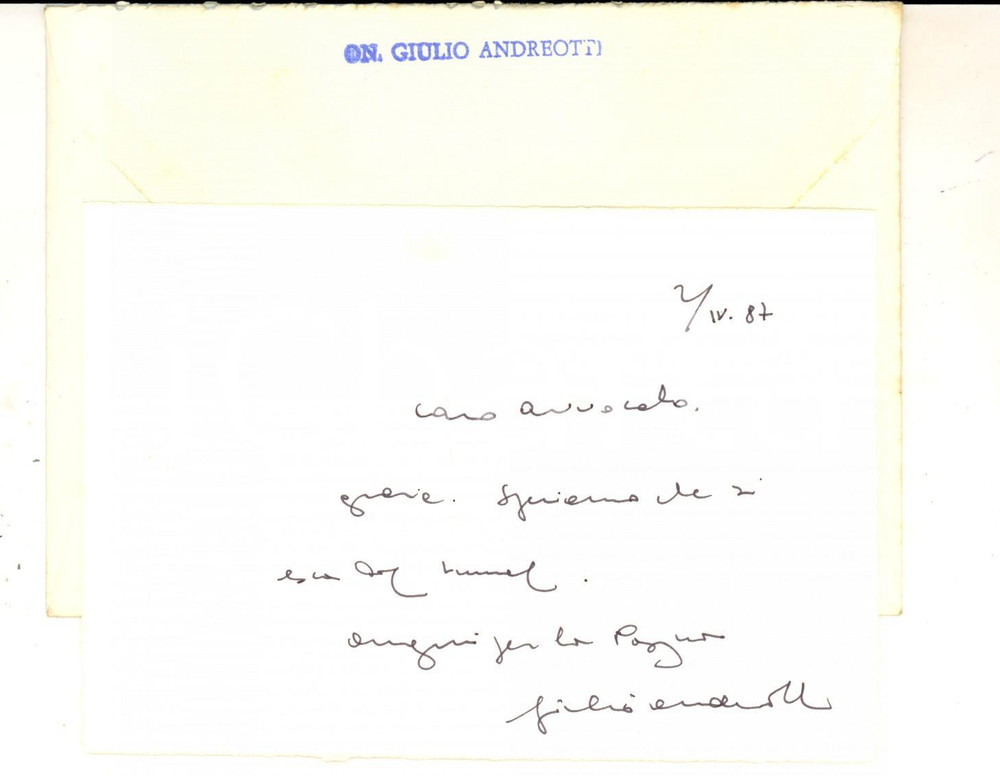 ON. GIULIO ANDREOTTI
2/IV. 87
caro avvocato.
grazie. Speriamo che si
esca dal tunnel.
auguri per la Pasqua
giulio andreotti